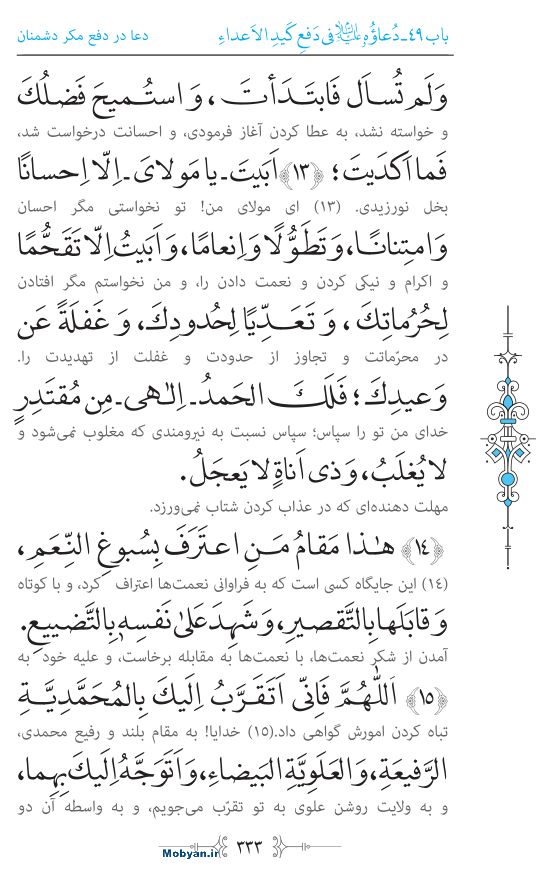 باب ۴۹ـ دُعاؤُه علیه‌السلام فی دَفعِ کَیدِ الاَعداءِ
دعا در دفع مکر دشمنان
وَ لَم تُسأَل فَابتَدَأتَ ، وَ استُمیحَ فَضلُكَ
و خواسته نشد، به عطا کردن آغاز فرمودی، و احسانت درخواست شد،
فَما اَکدَیتَ ؛ ﴿۱۳﴾ اَبَیتَ ـ یا مَولایَ ـ اِلّا اِحسانًا
بخل نورزیدی. (۱۳) ای مولای من! تو نخواستی مگر احسان
وَ امتِنانًا، وَ تَطَوُّلًا وَ اِنعامًا، وَ اَبَیتُ اِلّا تَقَحُّمًا
و اکرام و نیکی کردن و نعمت دادن را، و من نخواستم مگر افتادن
لِحُرُماتِكَ ، وَ تَعَدِّیًا لِحُدودِكَ، وَ غَفلَةً عَن
در محرّماتت و تجاوز از حدودت و غفلت از تهدیدت را.
وَعیدِكَ ؛ فَلَكَ الحَمدُ ـ اِلٰهی ـ مِن مُقتَدِرٍ
خدای من تو را سپاس؛ سپاس نسبت به نیرومندی که مغلوب نمی‌شود و
لا یُغلَبُ، وَ ذی اَناةٍ لا یَعجَلُ.
مهلت دهنده‌ای که در عذاب کردن شتاب نمی‌ورزد.
﴿۱۴﴾ هٰذا مَقامُ مَنِ اعتَرَفَ بِسُبوغِ النِّعَمِ،
(۱۴) این جایگاه کسی است که به فراوانی نعمت‌ها اعتراف کرد، و با کوتاه
وَ قابَلَها بِالتَّقصیرِ، وَ شَهِدَ عَلیٰ نَفسِه بِالتَّضییعِ.
آمدن از شکر نعمت‌ها، با نعمت‌ها به مقابله برخاست، و علیه خود به
﴿۱۵﴾ اَللّٰهُمَّ فَاِنّی اَتَقَرَّبُ اِلَیكَ بِالمُحَمَّدِیَّةِ
تباه کردن امورش گواهی داد.(۱۵) خدایا! به مقام بلند و رفیع محمدی،
الرَّفیعَةِ، وَ العَلَوِیَّةِ البَیضاءِ، وَ اَتَوَجَّهُ اِلَیكَ بِهِما،
و به ولایت روشن علوی به تو تقرّب می‌جویم، و به واسطه آن دو
۳۳۳
Mobyan.ir